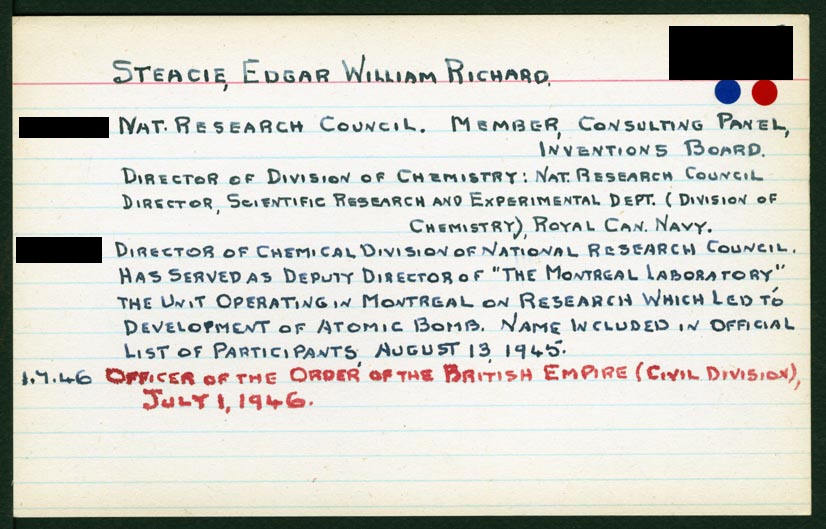 STEACIE, EDGAR WILLIAM RICHARD.
NAT. RESEARCH COUNCIL. MEMBER, CONSULTING PANEL,
INVENTIONS BOARD.
DIRECTOR OF DIVISION OF CHEMISTRY: NAT. RESEARCH COUNCIL
DIRECTOR, SCIENTIFIC RESEARCH AND EXPERIMENTAL DEPT. (DIVISION OF
CHEMISTRY), ROYAL CAN. NAVY.
DIRECTOR OF CHEMICAL DIVISION OF NATIONAL RESEARCH COUNCIL.
HAS SERVED AS DEPUTY DIRECTOR OF "THE MONTREAL LABORATORY"
THE UNIT OPERATING IN MONTREAL ON RESEARCH WHICH LED TO
DEVELOPMENT OF ATOMIC BOMB. NAME INCLUDED IN OFFICIAL
LIST OF PARTICIPANTS, AUGUST 13, 1945.
1.7.46 OFFICER OF THE ORDER OF THE BRITISH EMPIRE (CIVIL DIVISION),
JULY 1, 1946.